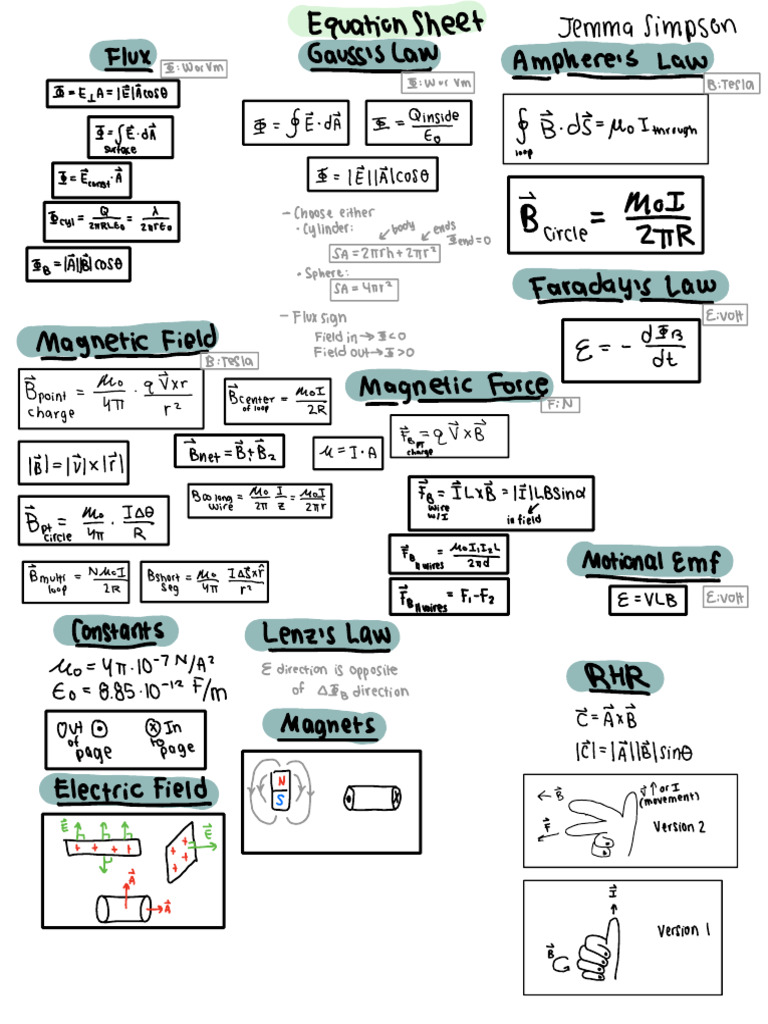 Equation Sheet
Jemma Simpson
Flux
Φ: W or Vm
Φ = E⊥A = |E||A|cosθ
Φ = ∫E⃗·dA⃗
surface
Φ = E⃗const·A⃗
Φcyl = Q/2πRLε₀ = λ/2πrε₀
Φ_B = |A⃗||B⃗|cosθ
Gauss's Law
Φ: W or Vm
Φ = ∮E⃗·dA⃗
Φ = Qinside/ε₀
Φ = |E⃗||A⃗|cosθ
- Choose either
• Cylinder:
body
ends
Φend = 0
SA = 2πrh + 2πr²
• Sphere:
SA = 4πr²
- Flux sign
Field in → Φ<0
Field out → Φ>0
Amphere's Law
B: Tesla
∮ B⃗·dS⃗ = μ₀ I through
loop
B⃗ circle = μ₀I/2πR
Faraday's Law
ε: volt
ε = - dΦ_B/dt
Magnetic Field
B: Tesla
B⃗ point charge = μ₀/4π · q V⃗×r/r²
B⃗ center of loop = μ₀I/2R
|B⃗| = |V⃗|×|r⃗|
B⃗net = B⃗₁+B⃗₂
μ = I·A
B⃗ pt circle = μ₀/4π · IΔθ/R
B ∞ long wire = μ₀/2π I/z = μ₀I/2πr
B⃗ multi loop = Nμ₀I/2R
B short seg = μ₀/4π IΔS⃗×r̂/r²
Magnetic Force
F: N
F⃗_B pt charge = q V⃗×B⃗
F⃗_B wire w/I = I⃗L×B⃗ = |I⃗|LBsinα
in field
F⃗_B || wires = μ₀I₁I₂L/2πd
F⃗_B || wires = F₁-F₂
Motional Emf
ε = VLB
ε: volt
Constants
μ₀ = 4π·10⁻⁷ N/A²
ε₀ = 8.85·10⁻¹² F/m
Out of page
In to page
Lenz's Law
ε direction is opposite
of ΔΦ_B direction
Magnets
N
S
Electric Field
E⃗
E⃗
A⃗
A⃗
RHR
C⃗ = A⃗×B⃗
|C⃗| = |A⃗||B⃗|sinθ
B⃗
F⃗
v⃗ or I
(movement)
Version 2
I⃗
B⃗
Version 1